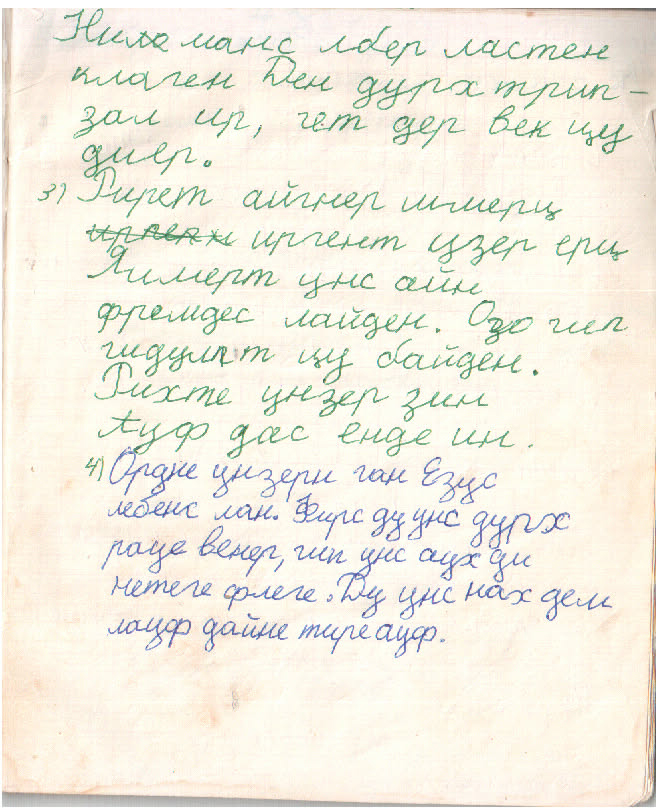 Нихт манс лбер ластен
клаген Ден дурх трип-
зал ир, гет дер век цу
дир.
3) Рирет айгнер шмерц
иргент цзер ерц
Кимерт цнс айн
фремдес лайден. Озо гип
гидулт цу байден.
Рихте цнзер зин
Ауф дас енде ин.
4) Ордне цнзерн ган Езус
лебенс лан. Фирс ду унс дурх
рауе венер, гип цнс аух ди
нетеге флеге. Ду цнс нах дем
лауф дайне тире ауф.